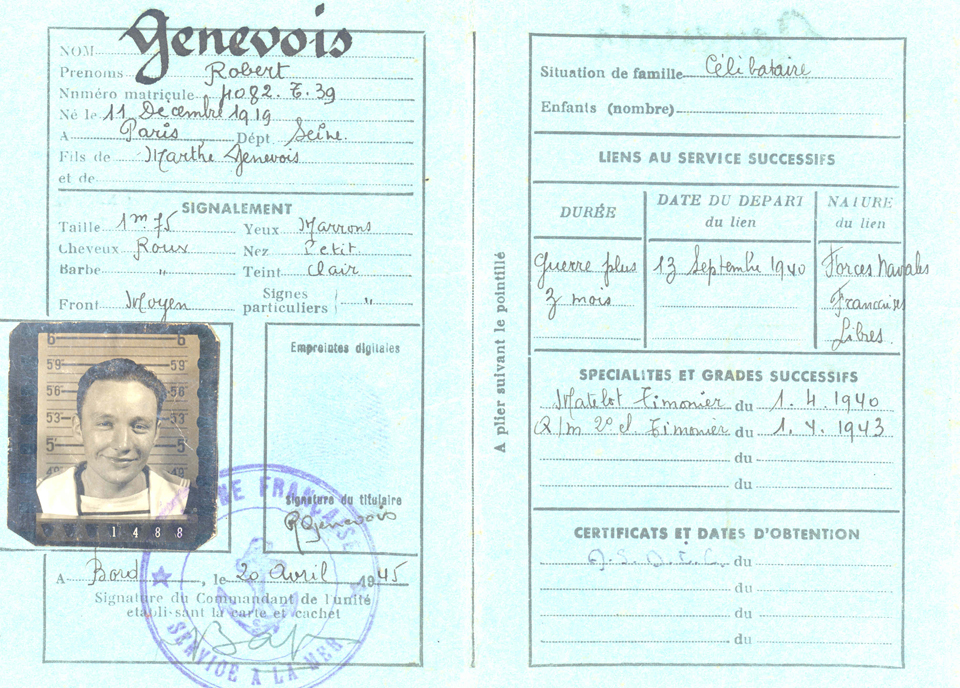 NOM Genevois
Prenoms Robert
Numéro matricule 4082. T. 39
Né le 11 Décembre 1919
A Paris Dépt Seine.
Fils de Marthe Genevois
et de
SIGNALEMENT
Taille 1m 75 Yeux Marrons
Cheveux Roux Nez Petit
Barbe " Teint Clair
Front Moyen Signes particuliers "
6 6
59 59
56 56
53 53
5 5
49 49
1488
Empreintes digitales
signature du titulaire
RGenevois
A Bord, le 20 Avril 1945
Signature du Commandant de l'unité
établissant la carte et cachet
FRANÇAISE
SERVICE À LA MER
A plier suivant le pointillé
Situation de famille Célibataire
Enfants (nombre)
LIENS AU SERVICE SUCCESSIFS
DURÉE
DATE DU DEPART
du lien
NATURE
du lien
Guerre plus
3 mois
13 Septembre 1940
Forces Navales
Françaises
Libres.
SPECIALITES ET GRADES SUCCESSIFS
Matelot Timonier du 1. 4. 1940
Q/m 2e cl Timonier du 1. 4. 1943
du
du
CERTIFICATS ET DATES D'OBTENTION
du
du
du
du